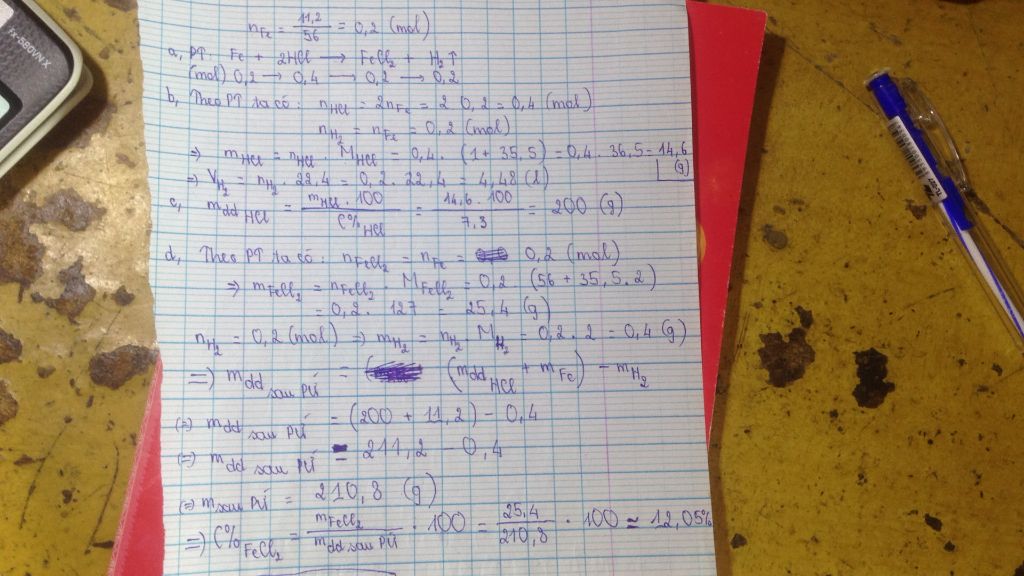 fx-580VN X
n_Fe = 11,2/56 = 0,2 (mol)
a, PT: Fe + 2HCl → FeCl₂ + H₂↑
(mol) 0,2 → 0,4 → 0,2 → 0,2
b, Theo PT ta có: n_HCl = 2n_Fe = 2. 0,2 = 0,4 (mol)
n_H₂ = n_Fe = 0,2 (mol)
⇒ m_HCl = n_HCl . M_HCl = 0,4 . (1 + 35,5) = 0,4 . 36,5 = 14,6 (g)
⇒ V_H₂ = n_H₂ . 22,4 = 0,2 . 22,4 = 4,48 (l)
c, mdd_HCl = m_HCl . 100 / C%_HCl = 14,6 . 100 / 7,3 = 200 (g)
d, Theo PT ta có: n_FeCl₂ = n_Fe = 0,2 (mol)
⇒ m_FeCl₂ = n_FeCl₂ . M_FeCl₂ = 0,2 . (56 + 35,5 . 2)
= 0,2 . 127 = 25,4 (g)
n_H₂ = 0,2 (mol) ⇒ m_H₂ = n_H₂ . M_H₂ = 0,2 . 2 = 0,4 (g)
⇒ mdd sau PƯ = (mdd_HCl + m_Fe) - m_H₂
(=) mdd sau PƯ = (200 + 11,2) - 0,4
(=) mdd sau PƯ = 211,2 - 0,4
(=) m sau PƯ = 210,8 (g)
⇒ C%_FeCl₂ = m_FeCl₂ / mdd sau PƯ . 100 = 25,4/210,8 . 100 ≈ 12,05%